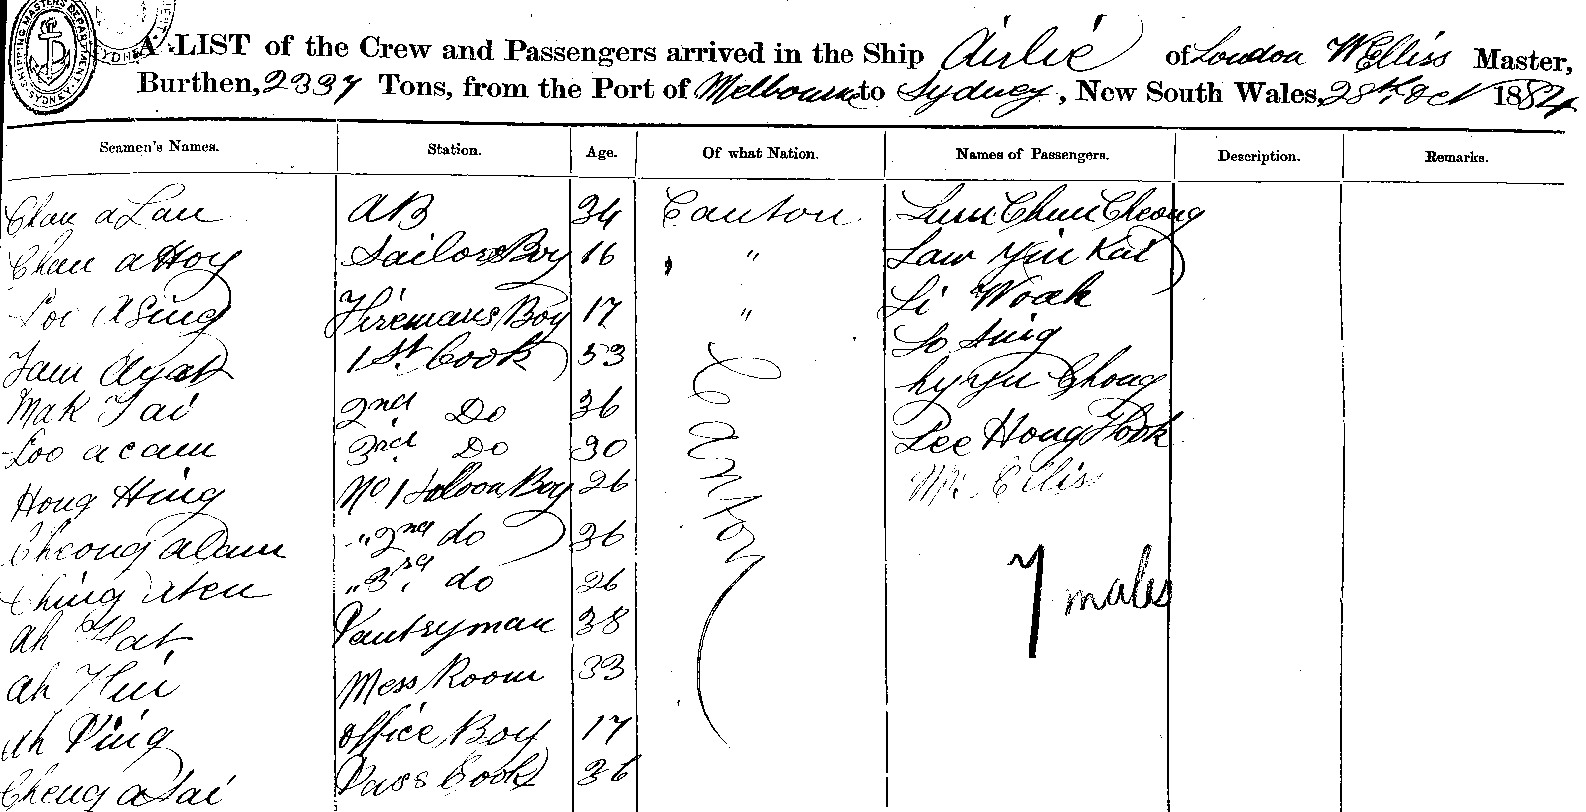 A LIST of the Crew and Passengers arrived in the Ship Airlie of London W Elliss Master,
Burthen, 2337 Tons, from the Port of Melbourne to Sydney, New South Wales, 28th Oct 1884
Seamen's Names. Station. Age. Of what Nation. Names of Passengers. Description. Remarks.
Chan a Lau AB 34 Canton Lum Chun Cheong
Chan a Hoy Sailors Boy 16 " " Law Yin Kai
Loo Firemans Boy 17 " Li Woah
Tam Ayat 1st Cook 53 Canton Lo Sing
Mak Tai 2nd Do 36 Chong
Loo a cam 3rd Do 30 Lee Hong Hook
Hong Hing No 1 Saloon Boy 26 Mr Ellis
Cheong alam " 2nd do 36
Ching " 3rd do 26 7 males
ah Hat Pantryman 38
ah Hin Mess Room 33
ah Ping office Boy 17
Cheng a Sai Pass Cook 36